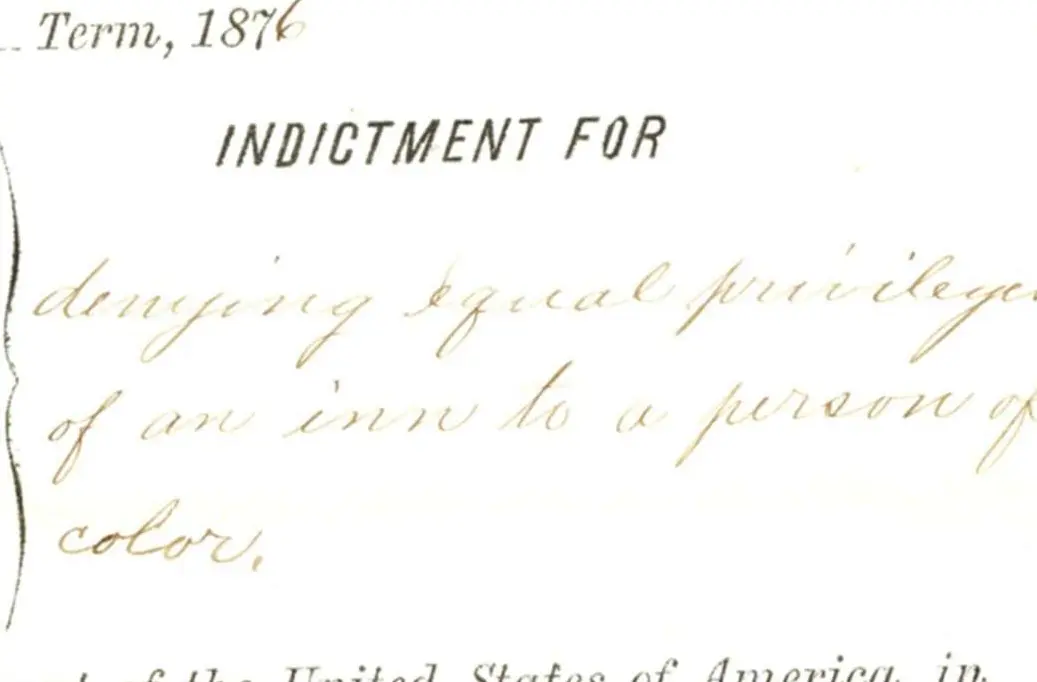 Term, 1876
INDICTMENT FOR
denying equal privileges
of an inn to a person of
color.
of the United States of America, in